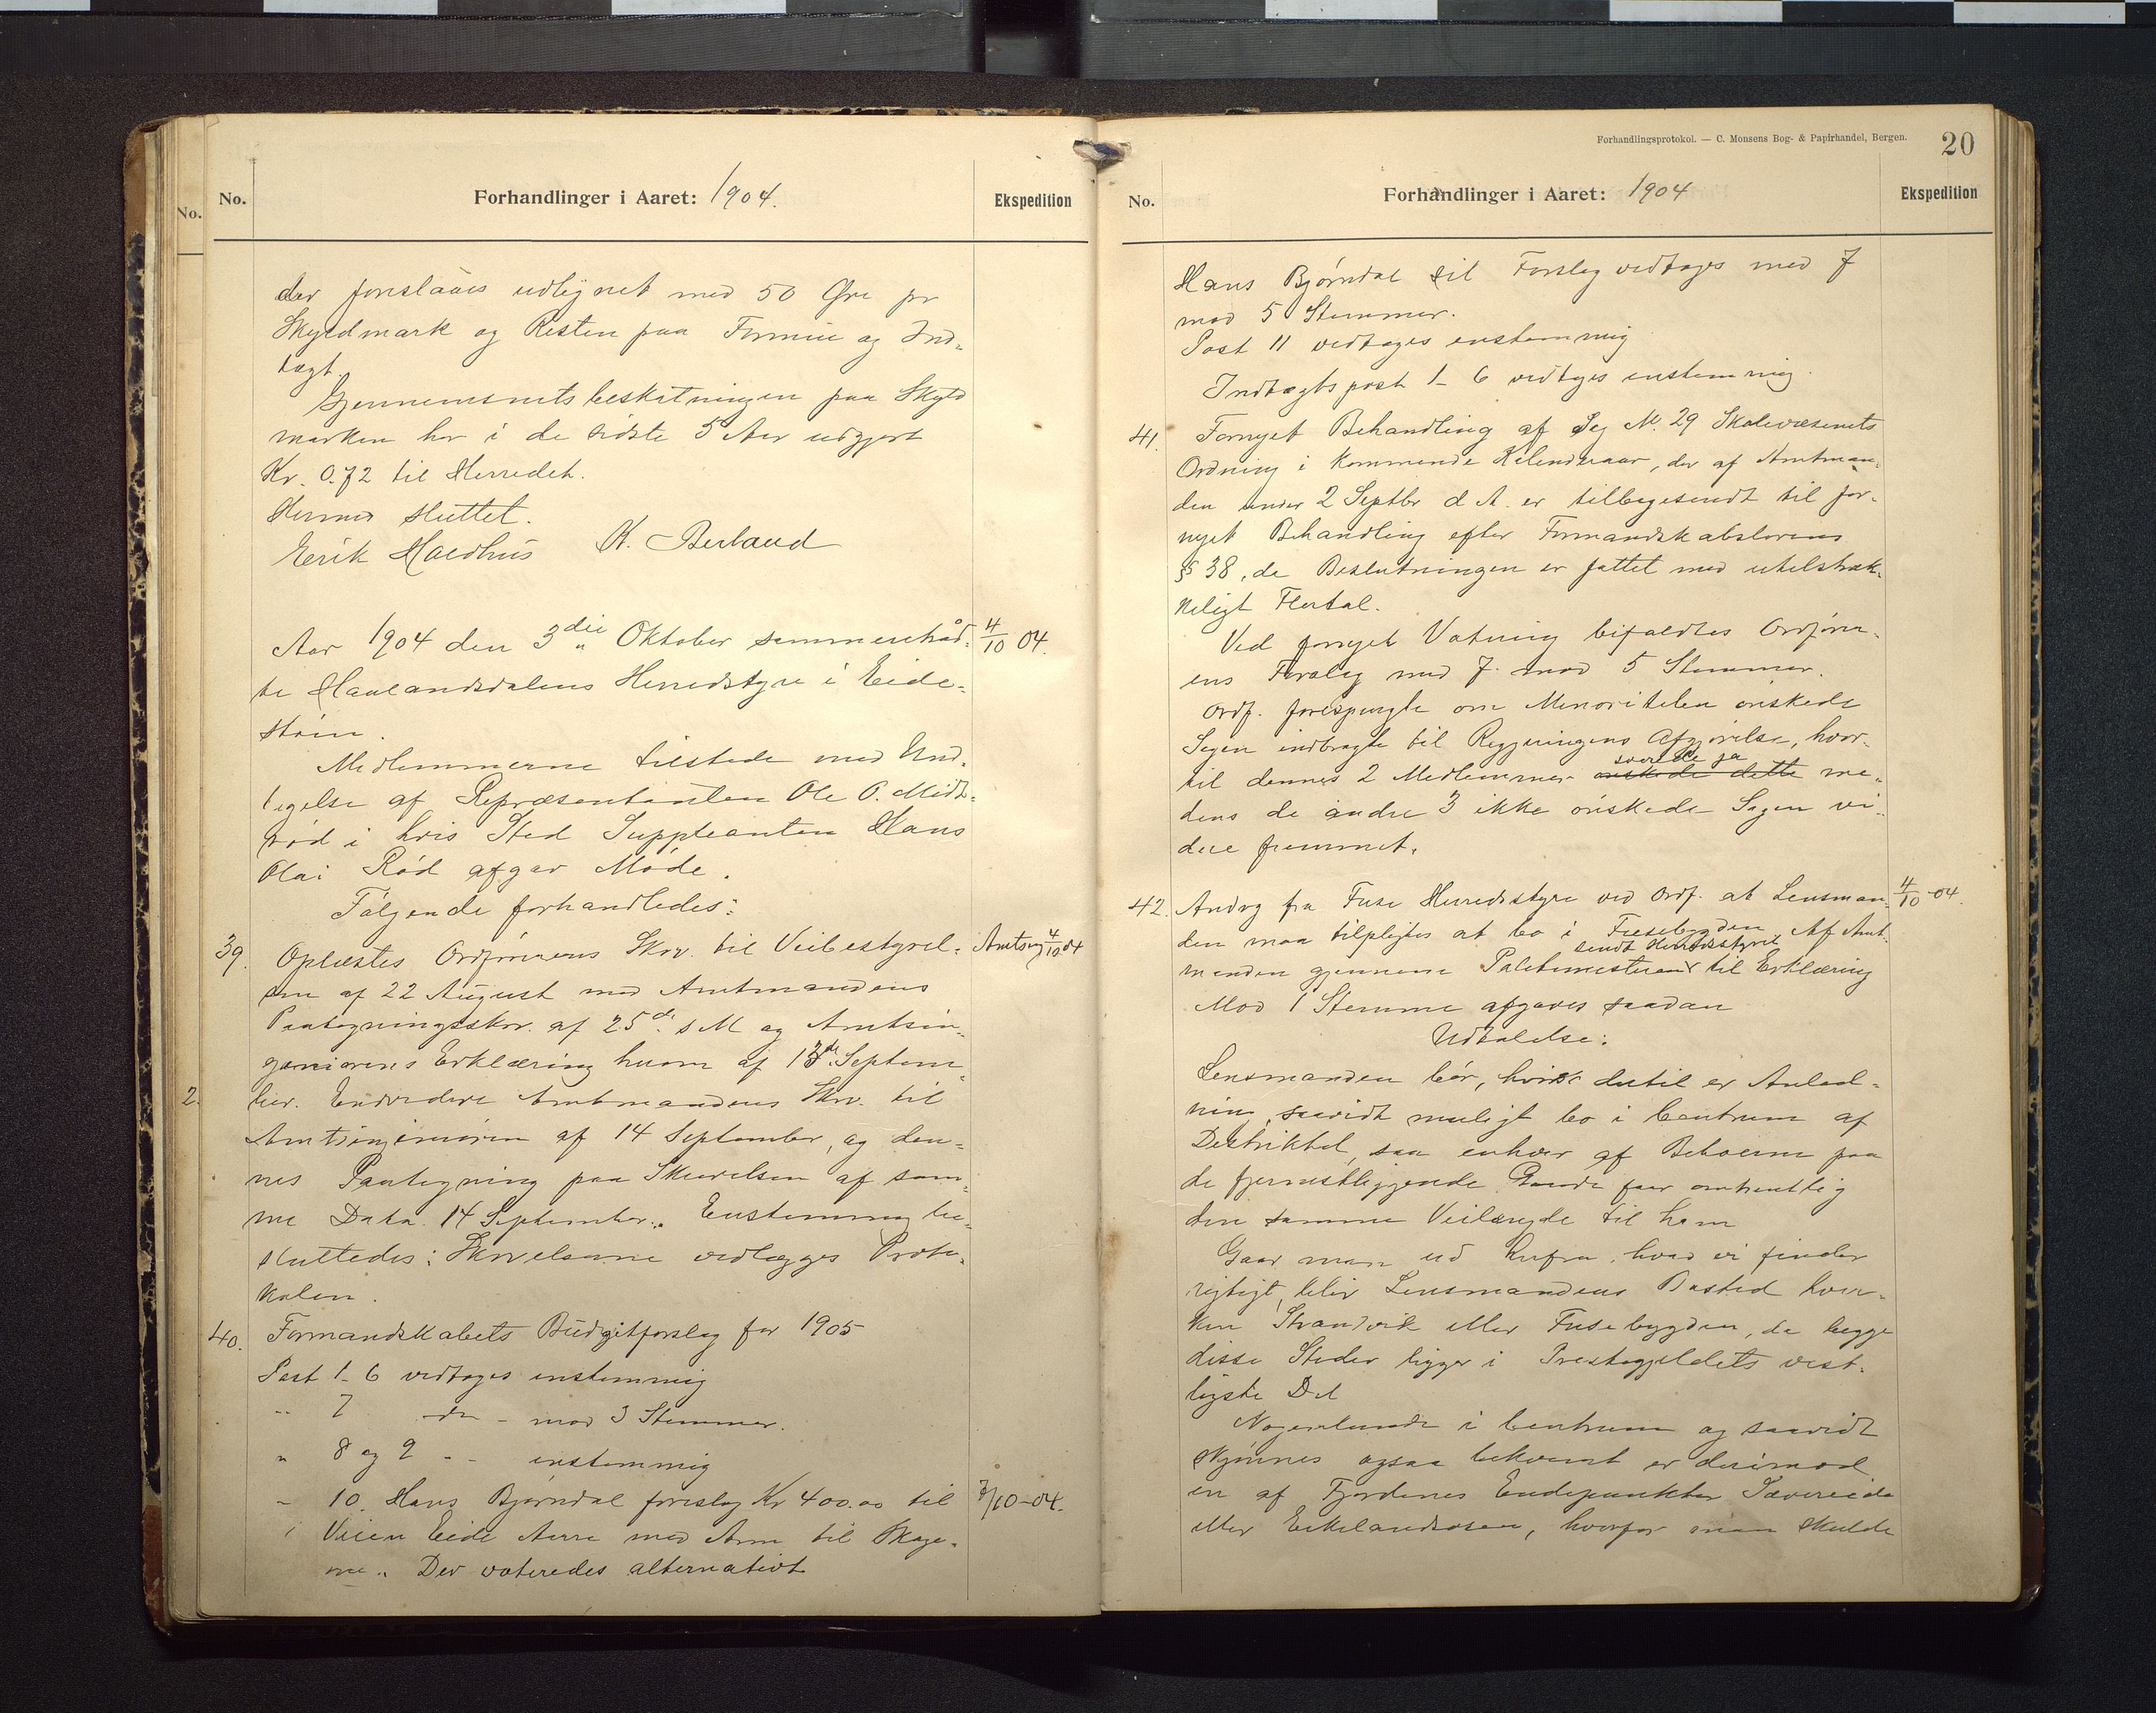 No.
No.
Forhandlinger i Aaret: 1904.
Ekspedition
der foreslaaes udlignet med 50 Øre pr
Skyldmark og Resten paa Formue og Ind-
tægt.
Gjennemsnitsbeskatningen paa Skyld
marken har i de sidste 5 Aar udgjort
Kr. 0.72 til Herredet.
Hermed sluttet.
Eerik Holdhus K. Berland
Aar 1904 den 3die Oktober sammentraad- 4/10 04.
te Haalandsdalens Herredstyre i Eide-
støen.
Medlemmerne tilstede med Und-
tagelse af Repræsentanten Ole O. Midt-
rød i hvis Sted Suppleanten Hans
Olai Rød afgav Møde.
Følgende forhandledes:
39. Oplæstes Ordførerens Skr. til Veibestyrel- Amtsing 4/10 04
sen af 22 August med Amtmandens
Paategningsskr. af 25de s M og Amtsin-
geniørens Erklæring herom af 13de Septem-
2.
ber. Endvidere Amtmandens Skr. til
Amtsingeniøren af 14 September, og den-
nes Paategning paa Skrivelsen af sam-
me Dato 14 September. Enstemmig be-
sluttedes: Skrivelserne vedlægges Proto-
kolen.
40. Formandskabets Budgetforslag for 1905
Post 1-6 vedtages enstemmig
" 7 do - mod 3 Stemmer.
" 8 og 9 - - enstemmig
" 10. Hans Bjørndal foreslog Kr 400.00 til 7/10-04.
Veien Eide Aarre med Arm til Skoge-
ne. Der voteredes alternativt
Forhandlingsprotokol. — C. Monsens Bog- & Papirhandel, Bergen.
20
No.
Forhandlinger i Aaret: 1904
Ekspedition
Hans Bjørndal sit Forslag vedtages med 7
mod 5 Stemmer.
Post 11 vedtages enstemmig
Indtægtspost 1-6 vedtages enstemmig.
41. Fornyet Behandling af Sag No. 29 Skolevæsenets
Ordning i kommende Kalenderaar, der af Amtman-
den under 2 Septbr d A. er tilbagesendt til for-
nyet Behandling efter Formandskabslovens
§ 38, da Beslutningen er fattet med utilstræk-
keligt Flertal.
Ved fornyet Votering bifaldtes Ordfører-
ens Forslag med 7 mod 5 Stemmer.
Ordf. forespurgte om Minoriteten ønskede
Sagen indbragte til Regjeringens Afgjørelse, hvor-
svarede ja
til dennes 2 Medlemmer ønskede dette me-
dens de andre 3 ikke ønskede Sagen vi-
dere fremmet.
42. Andrg fra Fuse Herredsstyre ved Ordf. at Lensman- 4/10-04.
den maa tilpligtes at bo i Fusebygden. Af Amt-
sendt Herredsstyret
manden gjennem Politimesteren til Erklæring
Mod 1 Stemme afgaves saadan
Udtalelse:
Lensmanden bør, hvis dertil er Anled-
ning, saavidt muligt bo i Centrum af
Distriktet, saa enhver af Beboerne paa
de fjernestliggende Gaarde faar omtrentlig
den samme Veilængde til ham
Gaar man ud herfra, hvad vi finder
rigtigt, bliv Lensmandens Bosted hver-
ken Strandvik eller Fusebygden, da begge
disse Steder ligger i Prestegjeldets vest-
ligste Del
Nogenlunde i Centrum og saavidt
skjønnes ogsaa bekvemt er derimod
en af Fjordenes Endepunkter Sævereide
eller Eikelandsosen, hvorfor man skulde